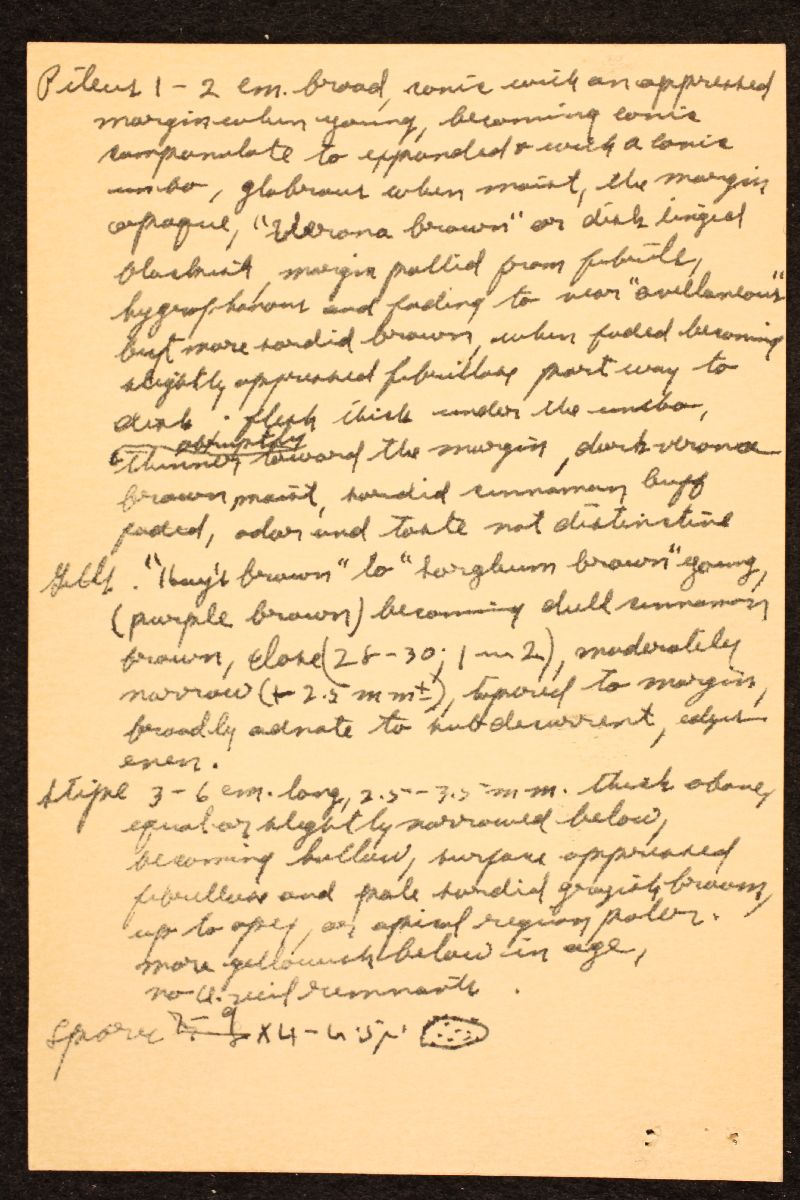 Pileus 1 - 2 cm. broad, conic with an appressed
margin when young, becoming conic
campanulate to expanded & with a conic
umbo, glabrous when moist, the margin
opaque, "Verona brown" or disk tinged
blackish, margin pallid from fibrils,
hygrophanous and fading to near "avellaneous"
but more sordid brown, when faded becoming
slightly appressed fibrillose part way to
disk. flesh thick under the umbo,
abruptly
thinner toward the margin, dark verona
brown moist, sordid cinnamon buff
faded, odor and taste not distinctive
Gills. "Hay's brown" to "sorghum brown" young,
(purple brown) becoming dull cinnamon
brown, close (28 - 30; 1 - 2), moderately
narrow (+ 2.5 mm ±), tapered to margin,
broadly adnate to subdecurrent, edges
even.
Stipe 3 - 6 cm. long, 2.5 - 3.5 mm. thick above,
equal or slightly narrowed below,
becoming hollow, surface appressed
fibrillose and pale sordid grayish brown,
up to apex, or apical region paler.
more yellowish below in age,
no veil remnants.
Spores 9 X 4 - 4.5 µ